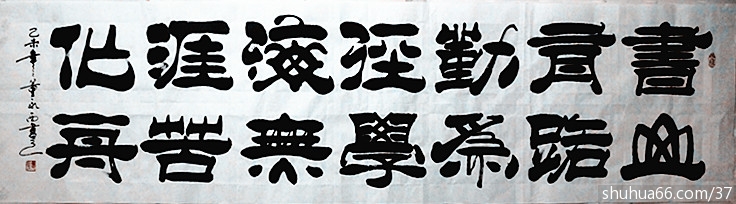 書山
有路
勤為
徑學
海無
涯苦
作舟
乙未年董永西書
shuhua66.com/37